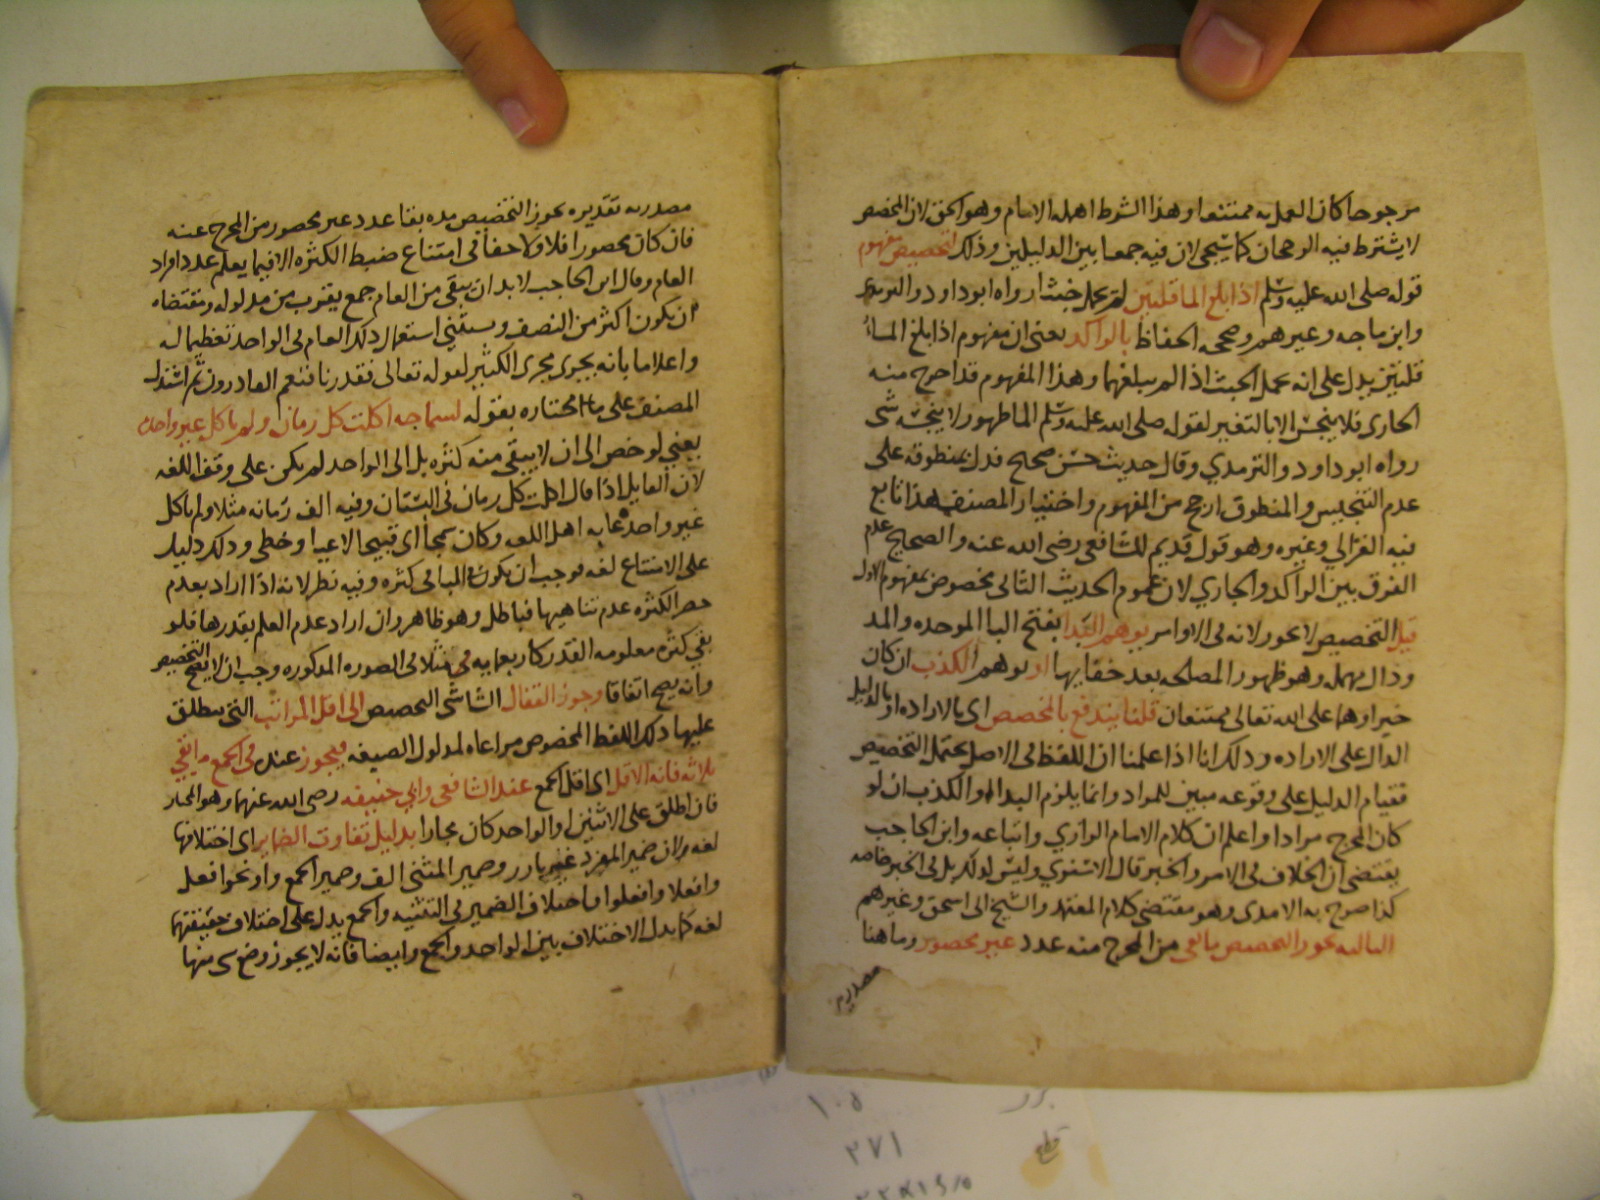 مرجوحا كان العمل به ممتنعا وهذا الشرط اهمله الامام وهو الحق لان المخصص
لا يشترط فيه الرجحان كما سيجي لان فيه جمعا بين الدليلين وذلك كتخصيص مفهوم
قوله صلى الله عليه وسلم اذا بلغ الما قلتين لم يحمل خبثا رواه ابو داود والترمدى
وابن ماجه وغيرهم وصححه الحفاظ بالراكد يعنى ان مفهوم اذا بلغ الماء
قلتين يدل على انه يحمل الخبث اذا لم يبلغهما وهذا المفهوم قد اخرج منه
الجارى فلا ينجس الا بالتغير لقوله صلى الله عليه وسلم الما طهور لا ينجسه شى
رواه ابو داود والترمدي وقال حديث حسن صحيح فدل بمنطوقه على
عدم التنجيس والمنطوق ارجح من المفهوم واختيار المصنف هذا تابع
فيه الغزالي وغيره وهو قول قديم للشافعى رضى الله عنه والصحيح عدم
الفرق بين الراكد والجاري لان عموم الحديث الثانى مخصوص بمفهوم الاول
قيل التخصيص لا يجوز لانه فى الاوامر يوهم البدا بفتح البا الموحده والمد
ودال مهمله وهو ظهور المصلحه بعد خفايها او يوهم الكذب ان كان
خبرا وهما على الله تعالى ممتنعان قلنا يندفع بالمخصص اى بالاراده او بالدليل
الدال على الاراده وذلك انا اذا علمنا ان اللفظ فى الاصل يحتمل التخصيص
فقيام الدليل على وقوعه مبين للمراد وانما يلزم البداء والكذب ان لو
كان المخرج مرادا واعلم ان كلام الامام الرازي واتباعه وابن الحاجب
يقتضى ان الخلاف فى الامر والخبر قال الاسنوي وليس كذلك بل فى الخبر خاصه
كذا صرح به الامدى وهو مقتضى كلام المعتمد والشيخ ابى اسحق وغيرهم
الثالثه يجوز التخصيص ما بقى من المخرج منه عدد غير محصور وما هنا
مصدريه
مصدريه تقديره يجوز التخصيص مده بقا عدد غير محصور من المخرج عنه
فان كان محصورا فلا ولا خفا فى امتناع ضبط الكثره الا فيما يعلم عدد افراد
العام وقال ابن الحاجب لا بد ان يبقى من العام جمع يقرب من مدلوله ومقتضاه
ان يكون اكثر من النصف ويستثنى استعمال ذلك العام فى الواحد تعظيما له
واعلاما بانه يجرى مجرى الكثير لقوله تعالى فقدرنا فنعم القادرون ثم استدل
المصنف على ما اختاره بقوله لسماجه اكلت كل رمان ولم ياكل غير واحده
يعنى لو خص الى ان لا يبقى منه كثره بل الى الواحد لم يكن على وفق اللغه
لان القايل اذا قال اكلت كل رمان فى البستان وفيه الف رمانه مثلا ولم ياكل
غير واحده عابه اهل اللغه وكان سمجا اى قبيحا لاعيا وخطى وذلك دليل
على الامتناع لغه فوجب ان يكون الباقى كثره وفيه نظر لانه اذا اراد بعدم
حصر الكثره عدم تناهيها فباطل وهو ظاهر وان اراد عدم العلم بقدرها فلو
بقى كثره معلومه القدر كاربعمايه فى مثلا فى الصوره المذكوره وجب ان لا يصح التخصيص
وانه يصح اتفاقا وجوز القفال الشاشى التخصيص الى اقل المراتب التى ينطلق
عليها ذلك اللفظ المخصوص مراعاه لمدلول الصيغه فيجوز عنده فى الجمع ما بقى
ثلاثه فانه الاقل اى اقل الجمع عند الشافعى وابى حنيفه رضى الله عنهما وهو المختار
فان اطلق على الاثنين او الواحد كان مجازا بدليل تفاوت الضماير اى اختلافها
لغه لان ضمير المفرد غير بارز وضمير المثنى الف وضمير الجمع واو نحو افعل
وافعلا وافعلوا واختلاف الضمير فى التثنيه والجمع يدل على اختلاف حقيقتهما
لغه كما يدل الاختلاف بين الواحد والجمع وايضا فانه لا يجوز وضع شى منها
١٠٥
٢٧١